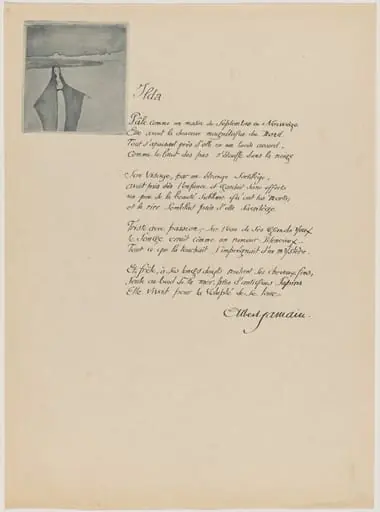 Ilda
Pâle comme un matin de Septembre en Norwège
Elle avait la douceur magnétique du Nord
Tout s'apaisait près d'elle en un accord
Comme le bruit des pas s'étouffe dans la neige
Son visage, par un étrange Sortilège,
avait pris dès l'enfance et gardait sans efforts
un peu de la beauté sublime qu'ont les morts,
et le rire semblait près d'elle sacrilège
Triste avec passion, sur l'eau de ses grands yeux
le songe errait comme un rameur silencieux.
Tout ce qui la touchait s'imprégnait d'un mystère.
Et frêle, à ses longs doigts ses cheveux fins,
seule au bord de la mer, près d'antiques sapins
Elle vivait pour la volupté de se taire.
Albert Samain.